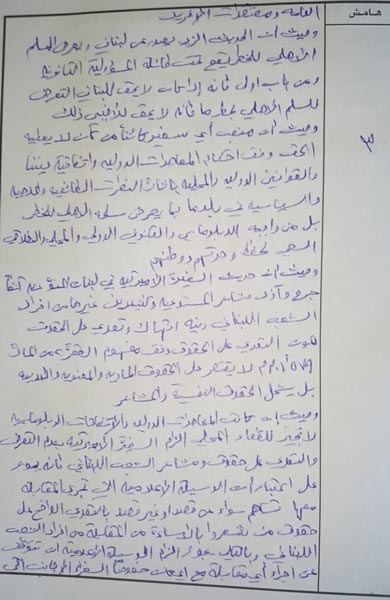 هامش
٣
العامة ومعتقدات
وحيث أن الحديث الذي يصدر عن لبناني ويعرض السلم
الأهلي للخطر يقع تحت طائلة المسؤولية القانونية
ومن باب أولى فانه إذا كان لا يحق للبناني التعرض
للسلم الأهلي بخطر ما فانه لا يحق للأجنبي ذلك
وحيث أن منصب أي سفير كائناً من كان لا يعطيه
الحق وفق أحكام المعاهدات الدولية واتفاقية فيينا
والقوانين الدولية والمحلية النعرات الطائفية والمذهبية
والسياسية في بلد ما بما يعرض سلمه الأهلي للخطر
بل من واجبه الدبلوماسي والقانوني الدولي والمحلي والأخلاقي
السعي لحفظ وحدتهم ووطنهم
وحيث أن حديث السفيرة الأميركية في لبنان آنفاً
جرح وآذى مشاعر المستدعية والعديدين غيرها من أفراد
الشعب اللبناني وفيه انتهاك وتعدي على الحقوق
كون التعدي على الحقوق وفق مفهوم الفقرة من المادة
٥٧٩/ أ.م.م لا يقتصر على الحقوق المادية والمعنوية
بل يشمل الحقوق النفسية والمشاعر
وحيث أنه كانت المعاهدات الدولية والاتفاقات الدبلوماسية
لا تجيز للقضاء المحلي الزام السفيرة الأميركية بعدم التعرض
والتعدي على حقوق ومشاعر الشعب اللبناني فانه يعود
على اعتبار أن الوسيلة الإعلامية التي تجري المقابلة
معها تساهم سواء عن قصد أو غير قصد بالتعدي الواقع على
حقوق من شعروا بالإساءة من المقابلة من أفراد الشعب
اللبناني وبالتالي يجوز الزام الوسيلة الإعلامية أن تتوقف
عن اجراء أي مقابلة مع